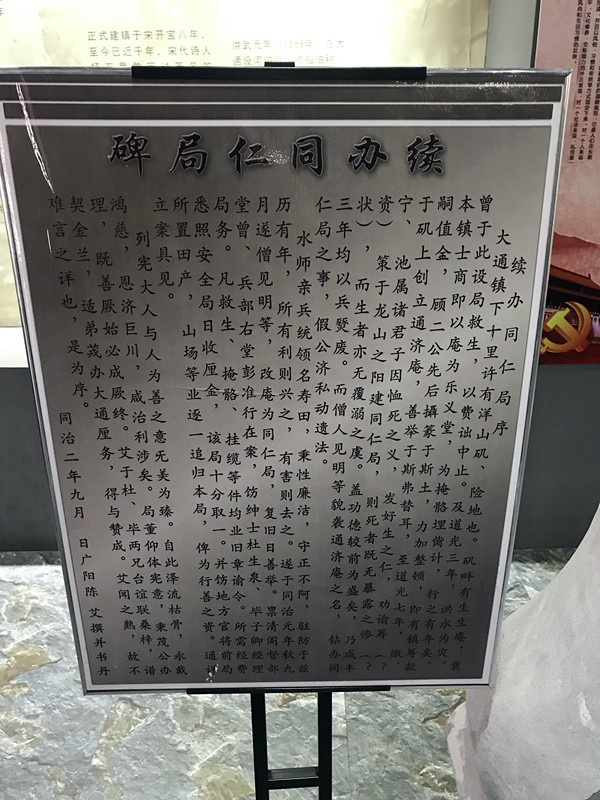 续办同仁局碑
续办同仁局序
大通镇下十里许有洋山矶、险地也。矶畔有生生庵，囊
曾于此设局救生，以费诎中止。及道光三年，洪水为灾。
本镇士商即以庵为乐义堂，为掩骼埋胔计，行之有年矣。
嗣值金，顾二公先后摄篆于斯土，力加整顿，即有镇筹款
于矶上创立通济庵，善举于斯弗替耳，至道光七年，徽、
宁、池属诸君子因恤死之义，发好生之仁，劝谕筹（？
资），策于龙山之阳建同仁局，则死者既无暴露之惨（？
状），而生者亦无覆溺之虞。盖功德较前为盛矣，乃咸丰
三年均以兵燹废。而僧人见明等貌袭通济庵之名，钻办同
仁局之事，假公济私动遗法。
水师亲兵统领名寿田，秉性廉洁，守正不阿，驻防于兹
历有年，所有利则兴之，有害则去之。遂于同治元年秋九
月逐僧见明等，改庵为同仁局，复旧日善举。禀清阁督部
堂曾、兵部右堂彭准行在案，饬绅士杜生泉、毕子卿经理
局务。凡救生、掩骼、挂缆等件均业旧章谕令。所需经费
悉照安全局日收厘金，该局十分取一。并饬地方官将前局
所置田产，山场等业逐一追归本局，俾为行善之资。通详
立案具见。
列宪大人与人为善之意旡美为臻。自此泽流枯骨，永戴
鸿慈，恩济巨川，咸治利涉矣。局董仰体宪意，秉茂公办
理，既善厥始必成厥终。艾于杜、毕两兄台谊联桑梓，谱
契金兰，适弟莪办大通厘务，得与赞成。艾闻之熟，故不
难言之详也，是为序。
同治二年九月 日广阳陈 艾撰并书丹
正式建镇于宋开宝八年，
至今已近千年，宋代诗人